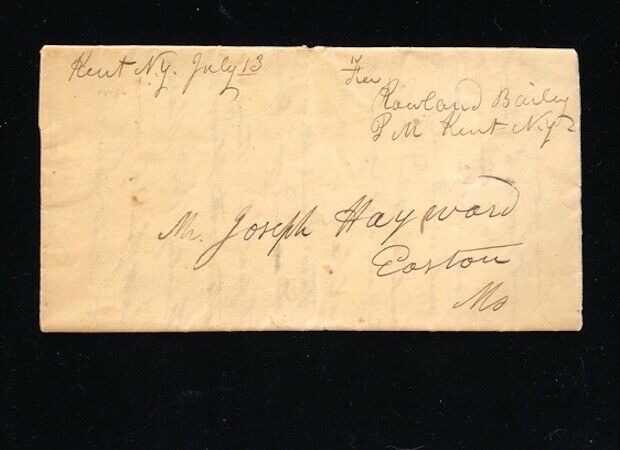 Kent N.Y. July 13
Free
Rowland Bailey
P M Kent N.Y
Mr. Joseph Hayward
Easton
Ms